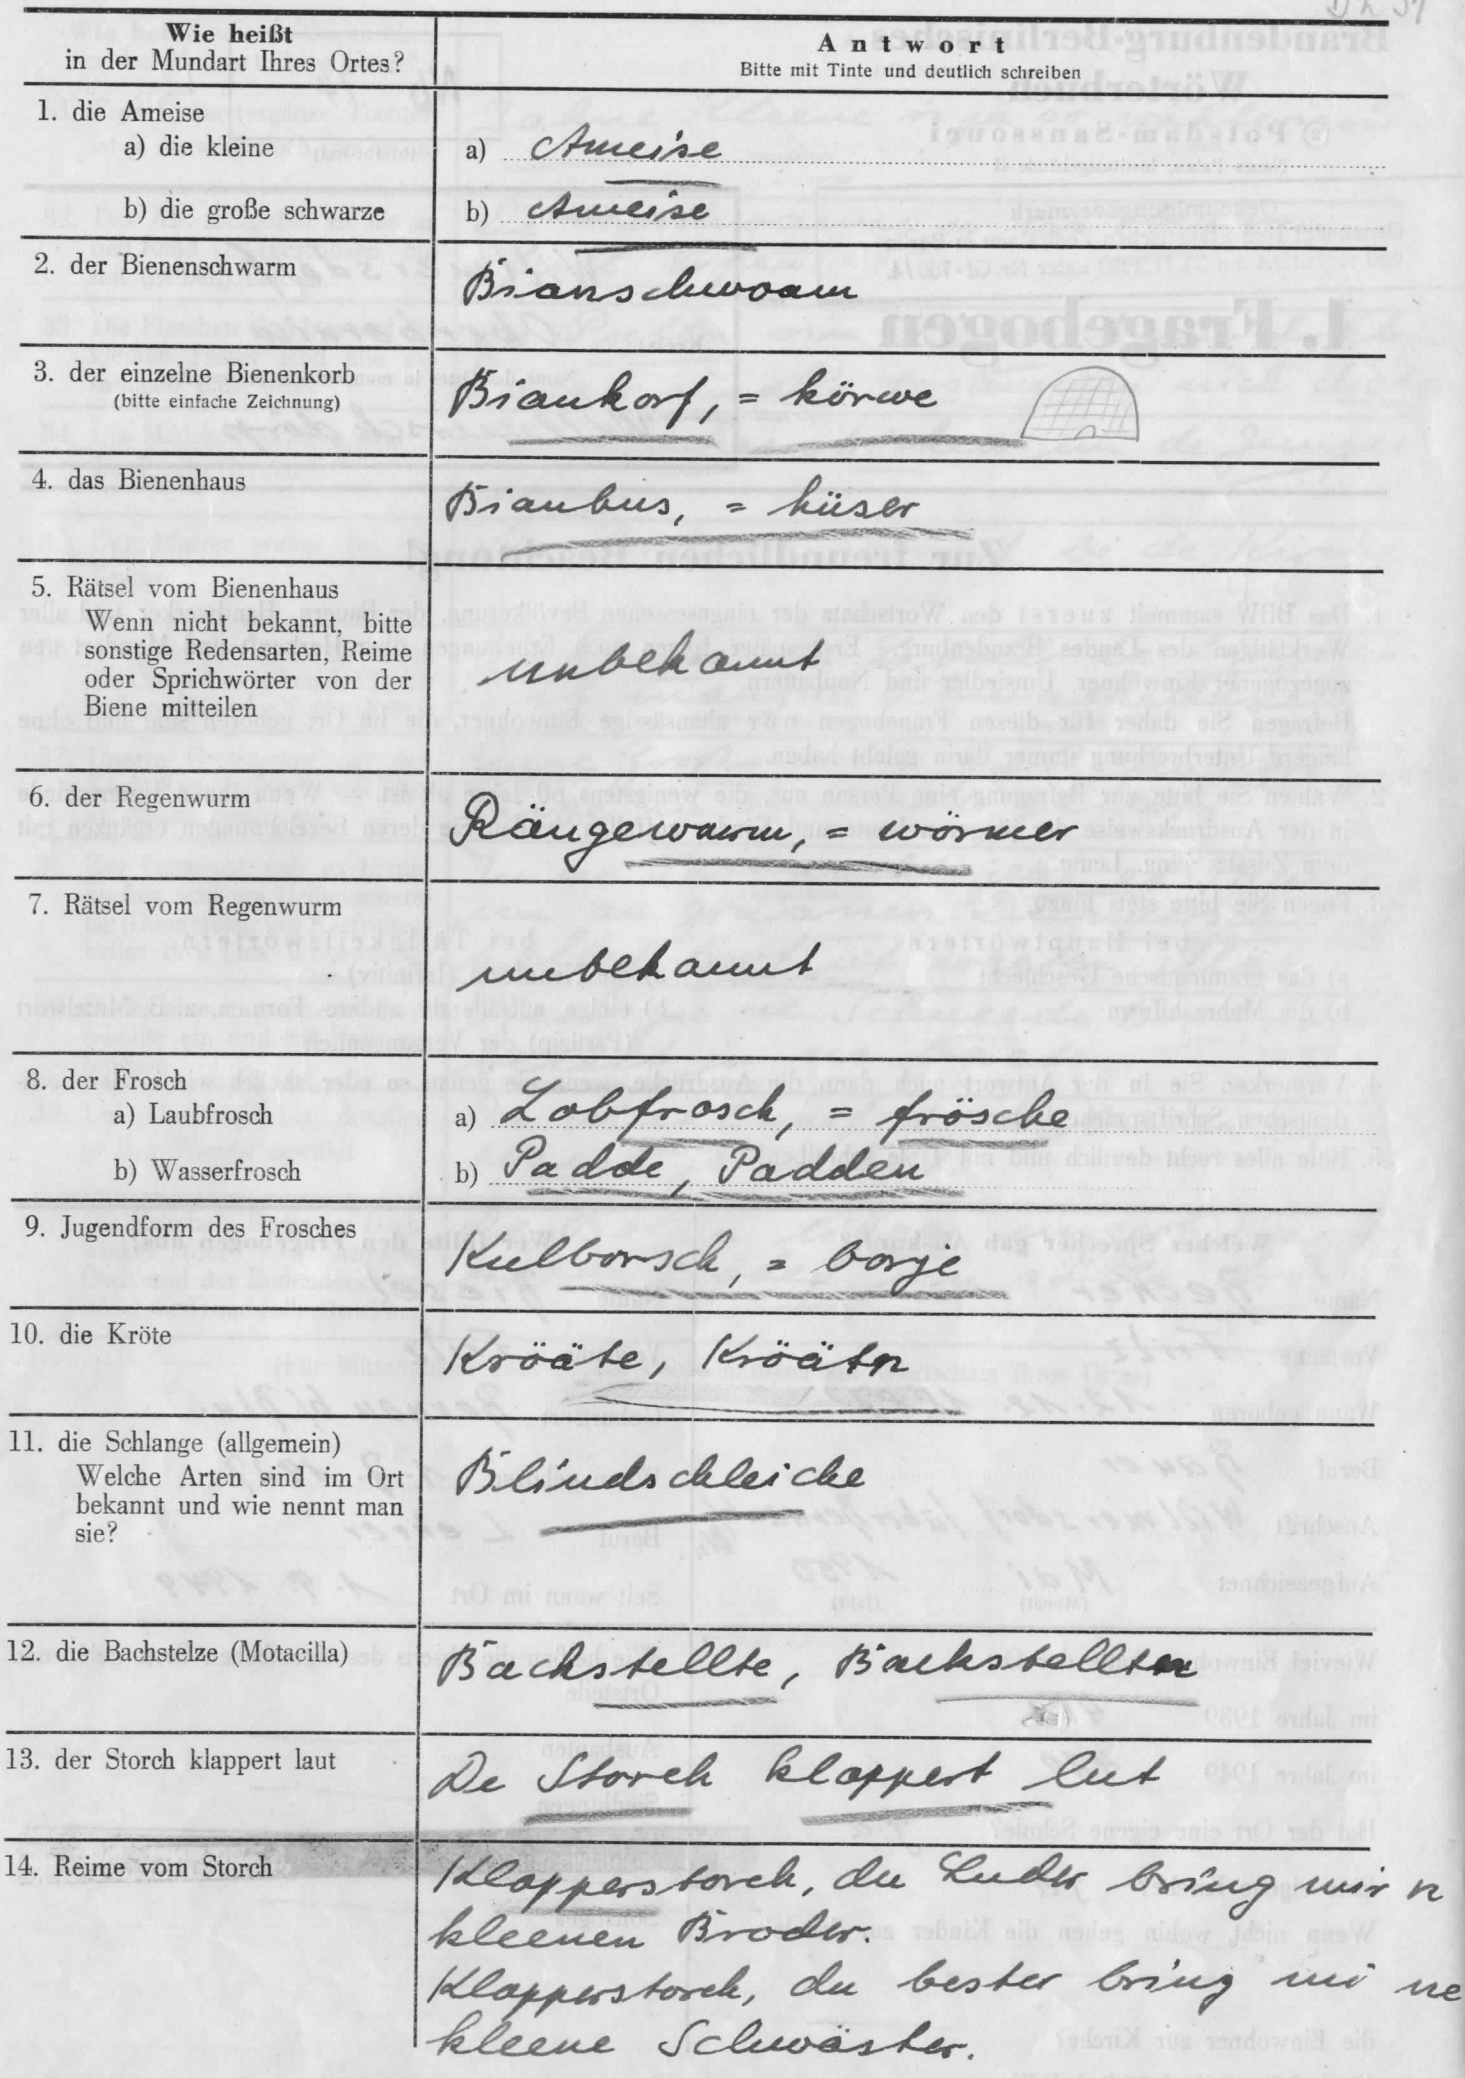 Wie heißt
in der Mundart Ihres Ortes?
Antwort
Bitte mit Tinte und deutlich schreiben
1. die Ameise
a) die kleine
a) Ameise
b) die große schwarze
b) Ameise
2. der Bienenschwarm
Bianschwoam
3. der einzelne Bienenkorb
(bitte einfache Zeichnung)
Biankorf, = körwe
4. das Bienenhaus
Bianhus, = hüser
5. Rätsel vom Bienenhaus
Wenn nicht bekannt, bitte
sonstige Redensarten, Reime
oder Sprichwörter von der
Biene mitteilen
unbekannt
6. der Regenwurm
Rängewurm, = wörmer
7. Rätsel vom Regenwurm
unbekannt
8. der Frosch
a) Laubfrosch
a) Lobfrosch, = frösche
b) Wasserfrosch
b) Padde, Padden
9. Jugendform des Frosches
Kulborsch, = borje
10. die Kröte
Kröäte, Kröätn
11. die Schlange (allgemein)
Welche Arten sind im Ort
bekannt und wie nennt man
sie?
Blindschleiche
12. die Bachstelze (Motacilla)
Bachstellte, Bachstelltn
13. der Storch klappert laut
De Storch klappert lut
14. Reime vom Storch
Klapperstorch, du Luder bring mir n
kleenen Broder.
Klapperstorch, du bester bring mi ne
kleene Schwäster.